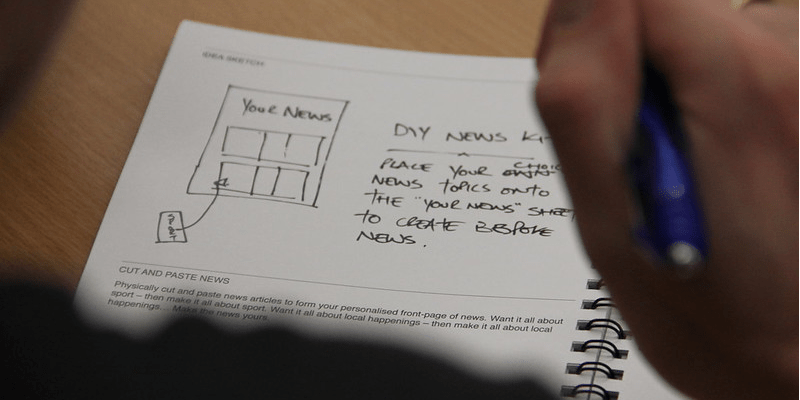 IDEA SKETCH
YOUR NEWS
SPORT
DIY NEWS
PLACE YOUR CHOICE
NEWS TOPICS ONTO
THE "YOUR NEWS" SHEET
TO CREATE BESPOKE
NEWS.
CUT AND PASTE NEWS
Physically cut and paste news articles to form your personalised front-page of news. Want it all about
sport – then make it all about sport. Want it all about local happenings – then make it all about local
happenings... Make the news yours.